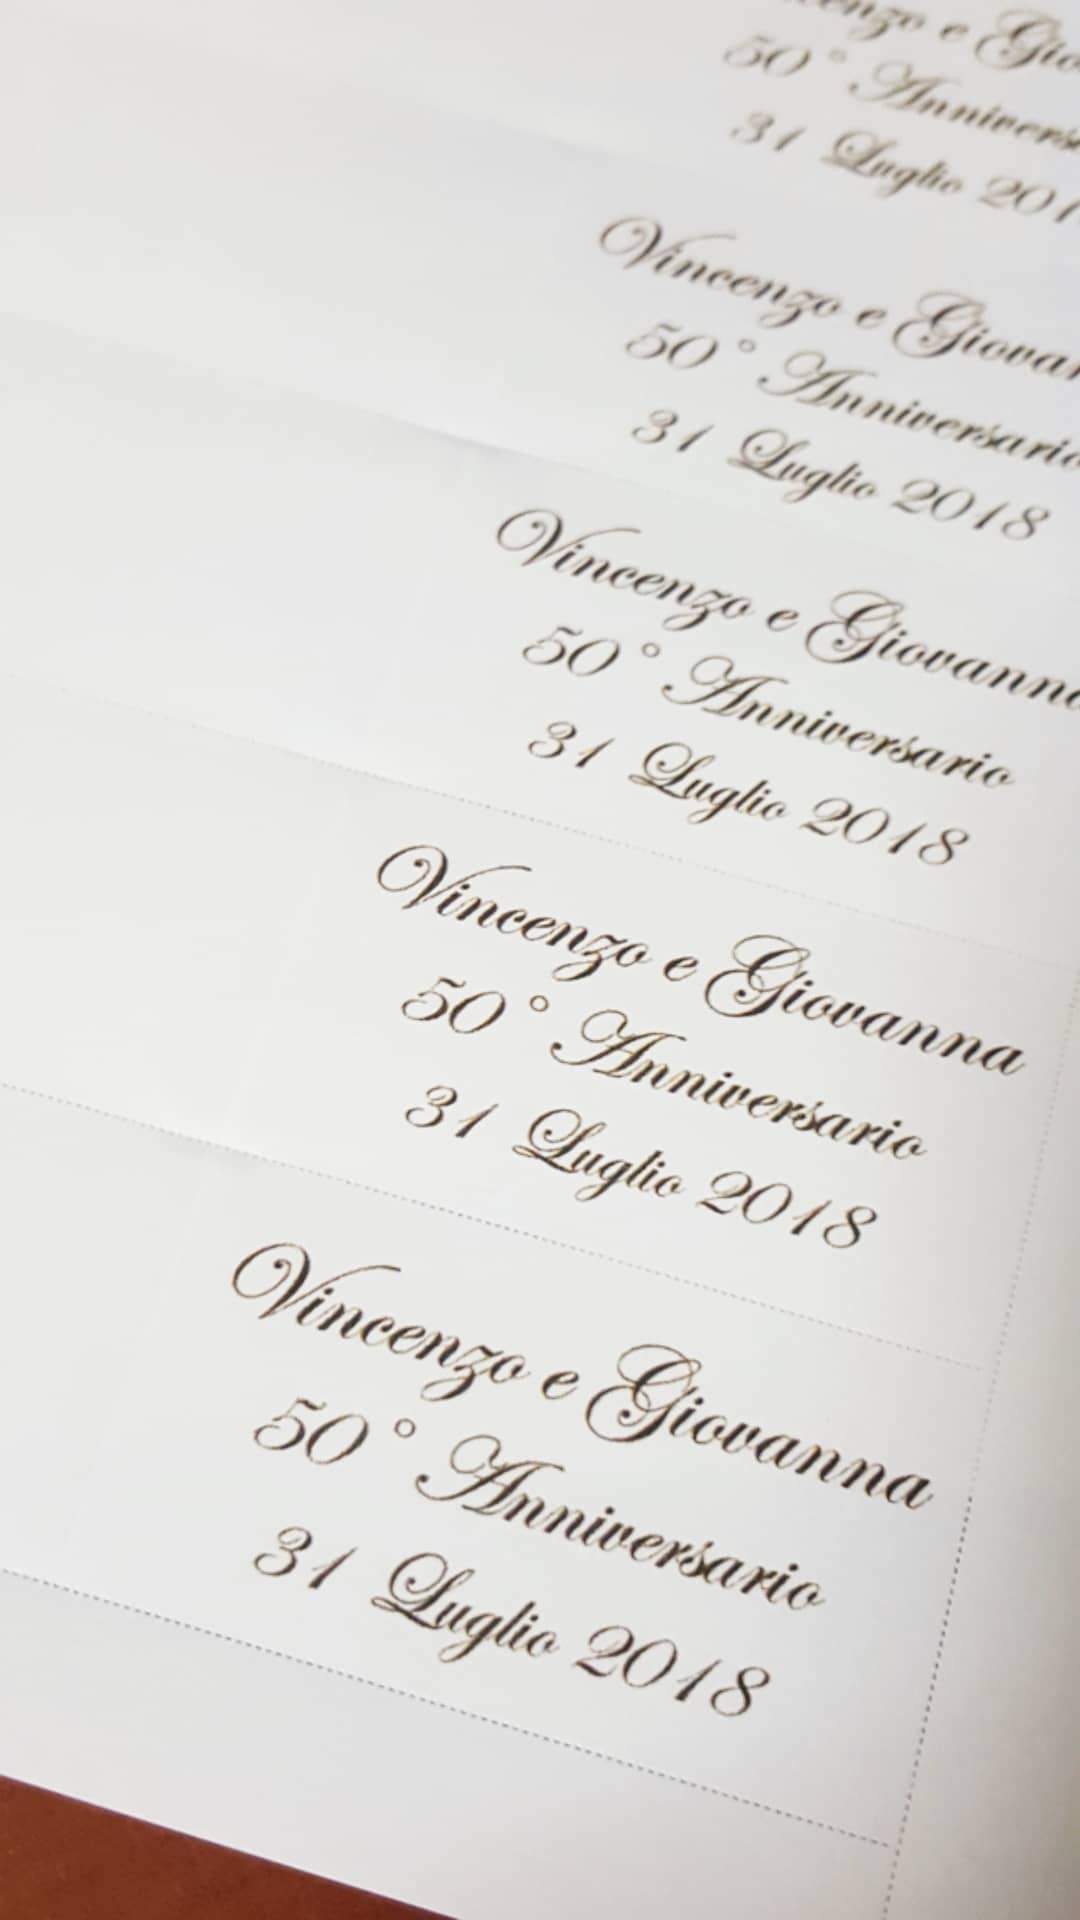 e
50° 
31 Luglio
Vincenzo e
50° Anniversario
31 Luglio 2018
Vincenzo e Giovanna
50° Anniversario
31 Luglio 2018
Vincenzo e Giovanna
50° Anniversario
31 Luglio 2018
Vincenzo e Giovanna
50° Anniversario
31 Luglio 2018